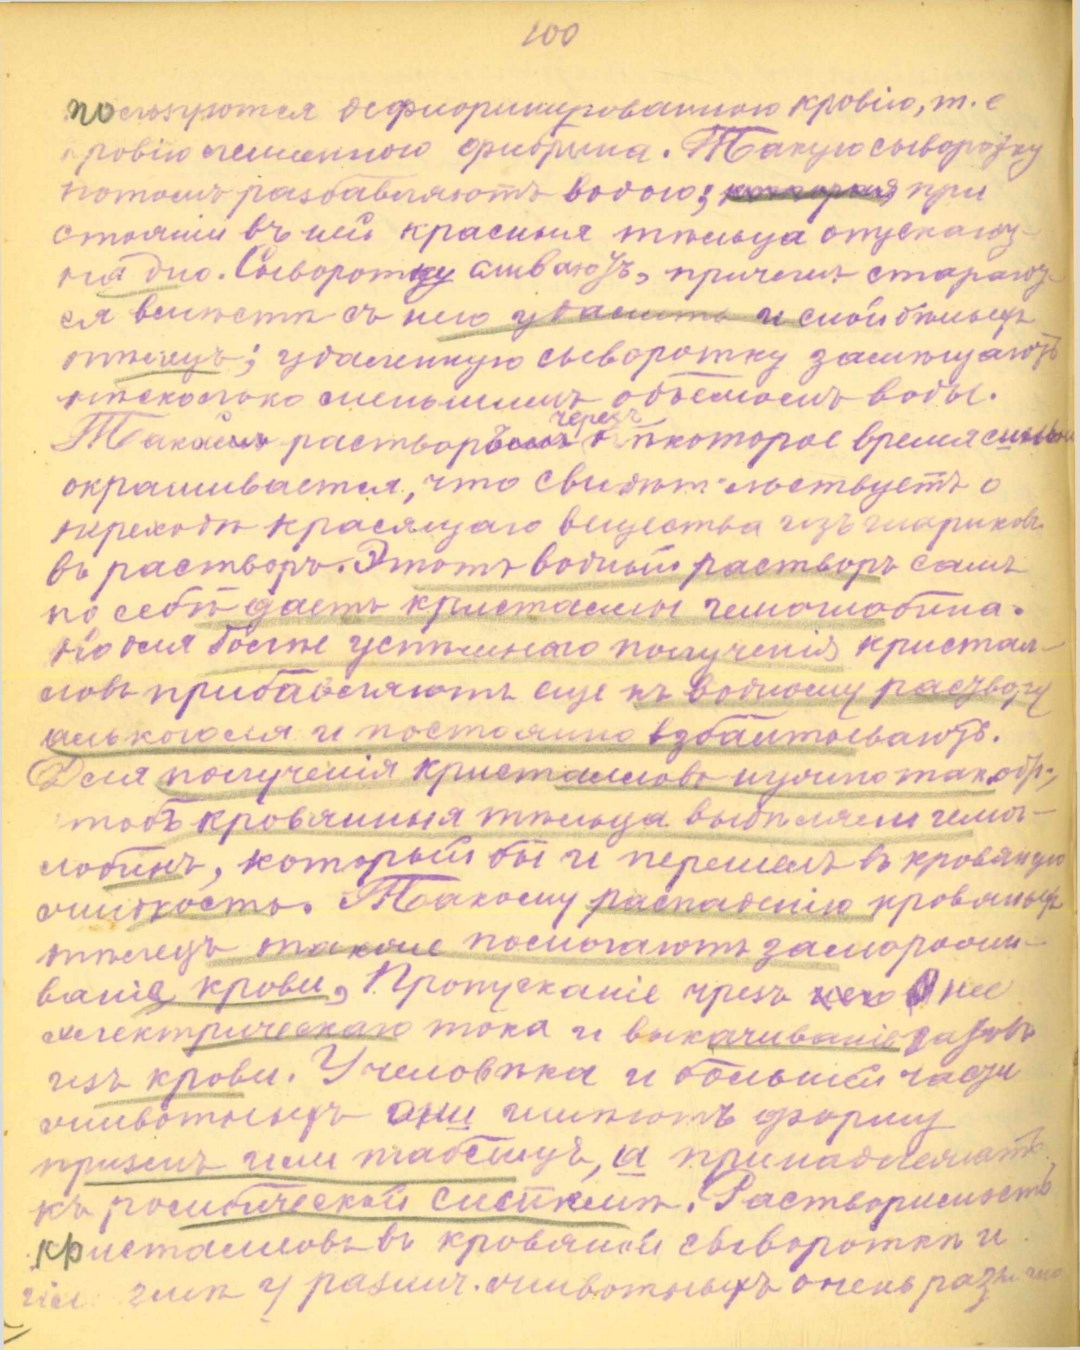 100
пользуются дефибринированною кровію, т. е
кровію лишенною фибрина. Такую сыворотку
потомъ разбавляютъ водою; при
стояніи въ ней красныя тѣльца опускаютъ-
на дно. Сыворотку сливаютъ, причемъ стараютъ-
ся вмѣстѣ съ нею удалить и слой бѣлыхъ
тѣлецъ; удаленную сыворотку замѣщаютъ
нѣсколько меньшимъ объемомъ воды.
Такой растворъ черезъ нѣкоторое время сильно
окрашивается, что свидѣтельствуетъ о
переходѣ красящаго вещества изъ шариковъ
въ растворъ. Этотъ водный растворъ самъ
по себѣ даетъ кристаллы гемоглобина.
Но для болѣе успѣшнаго полученія кристал-
ловъ прибавляютъ еще къ водному раствору
алькоголя и постоянно взбалтываютъ.
Для полученія кристалловъ нужно так. обр.,
чтобъ кровяныя тѣльца выдѣляли гемог-
лобинъ, который бы и перешелъ въ кровяную
жидкость. Такому распаденію кровяныхъ
тѣлецъ также помогаютъ заморожи-
ваніе крови, Пропусканіе чрезъ нее
электрическаго тока и выкачиваніе газовъ
изъ крови. У человѣка и большей части
животныхъ они имѣютъ форму
призмъ или таблицъ, и принадлежатъ
къ ромбической системѣ. Растворимость
кристалловъ въ кровяной сывороткѣ и
у различ. животныхъ очень различна